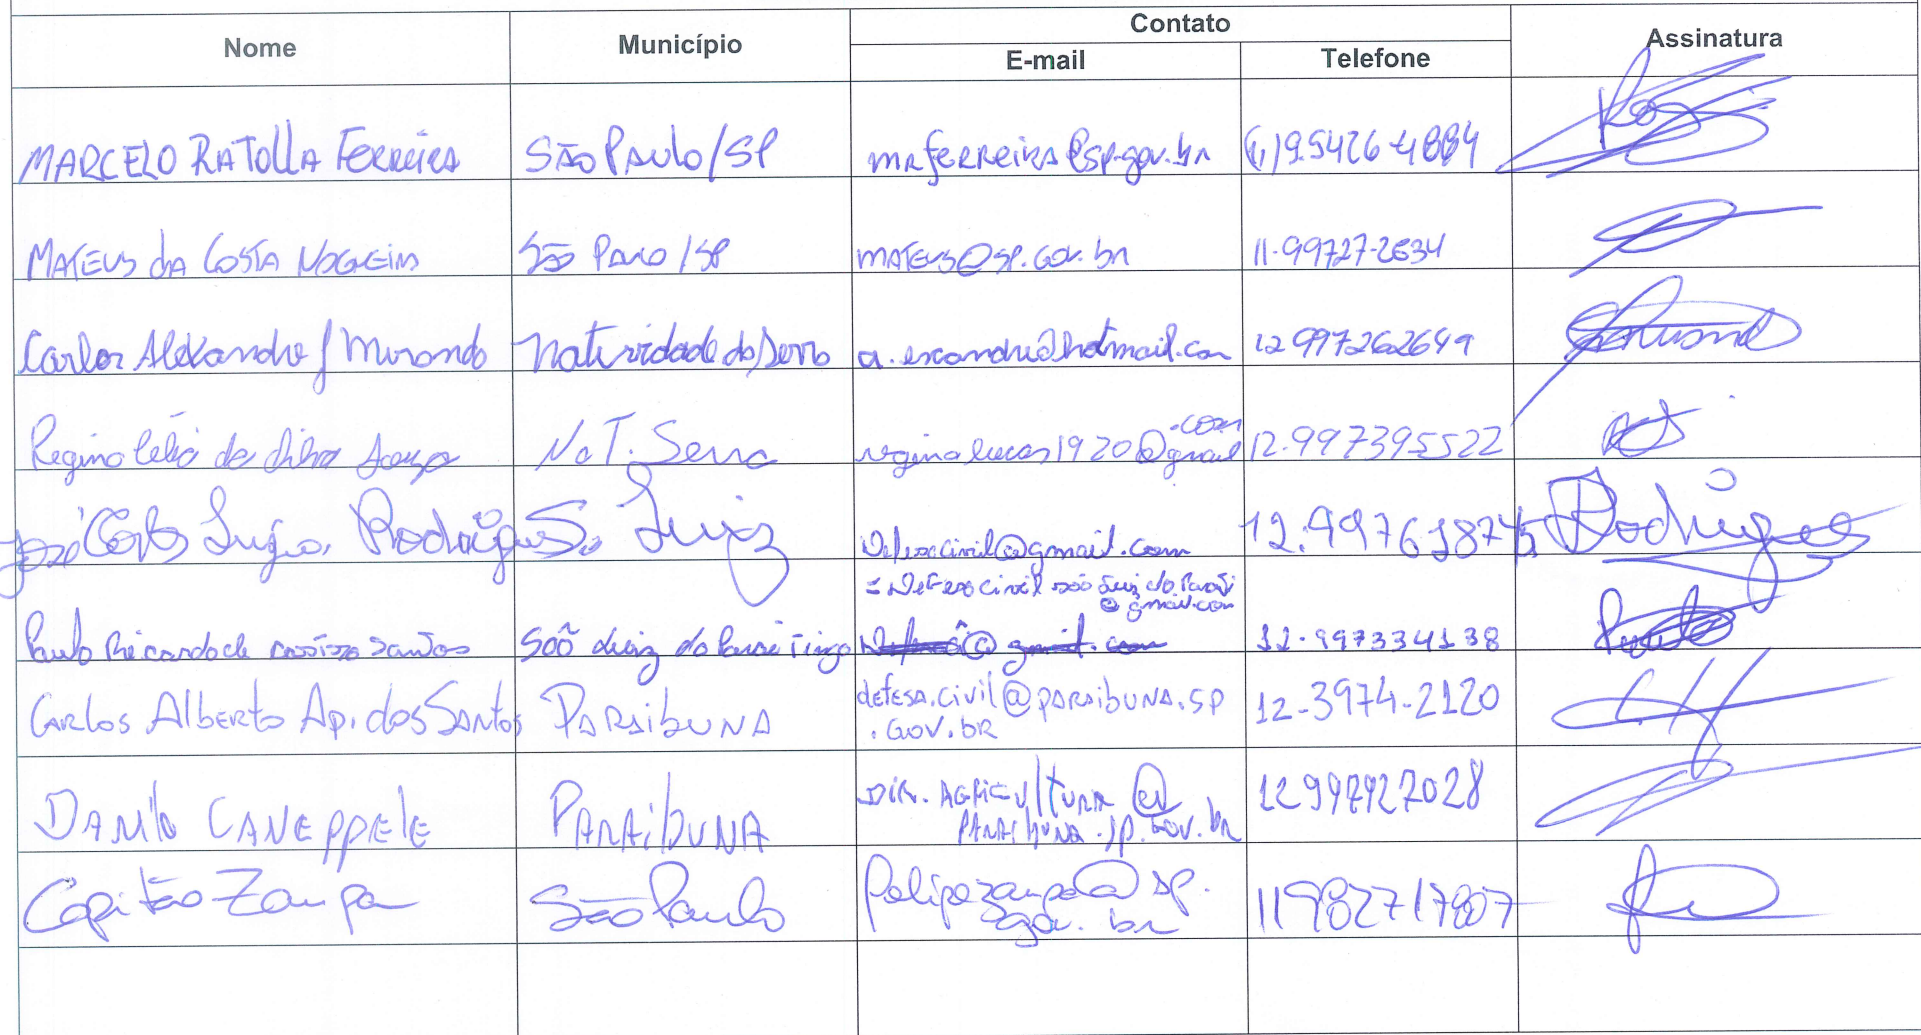 Nome Município Contato Assinatura
E-mail Telefone
MARCELO RATOLLA FERREIRA SÃO PAULO/SP mrferreira@sp.gov.br (11)9.5426-4884
MATEUS DA COSTA NOGUEIRA São Paulo/SP mateus@sp.gov.br 11-99727-2634
Carlos Alexandre J Miranda Natividade da Serra a.exandre@hotmail.com 12 997262649
Regina Célia da Silva Souza Nat. Serra reginalucas1920@gmail.com 12-997395522
José Carlos Luzia Rodrigues S. Luiz Defesacivil@gmail.com 12.997618745 Rodrigues
Paulo Ricardo de Santos São Luiz do Paraitinga = Defesa civil são Luiz do Parai
@gmail.com
12-997334138
Carlos Alberto Ap. dos Santos PARAIbUNA defesa.civil@paraibuna.sp
.gov.br
12-3974-2120
Danilo CANEPPELE PARAIbUNA DIR. AGRICULTURA@
PARAIBUNA.SP.GOV.BR
12997927028
Capitão Zaupa São Paulo felipezaupa@sp.
gov.br
11982717807